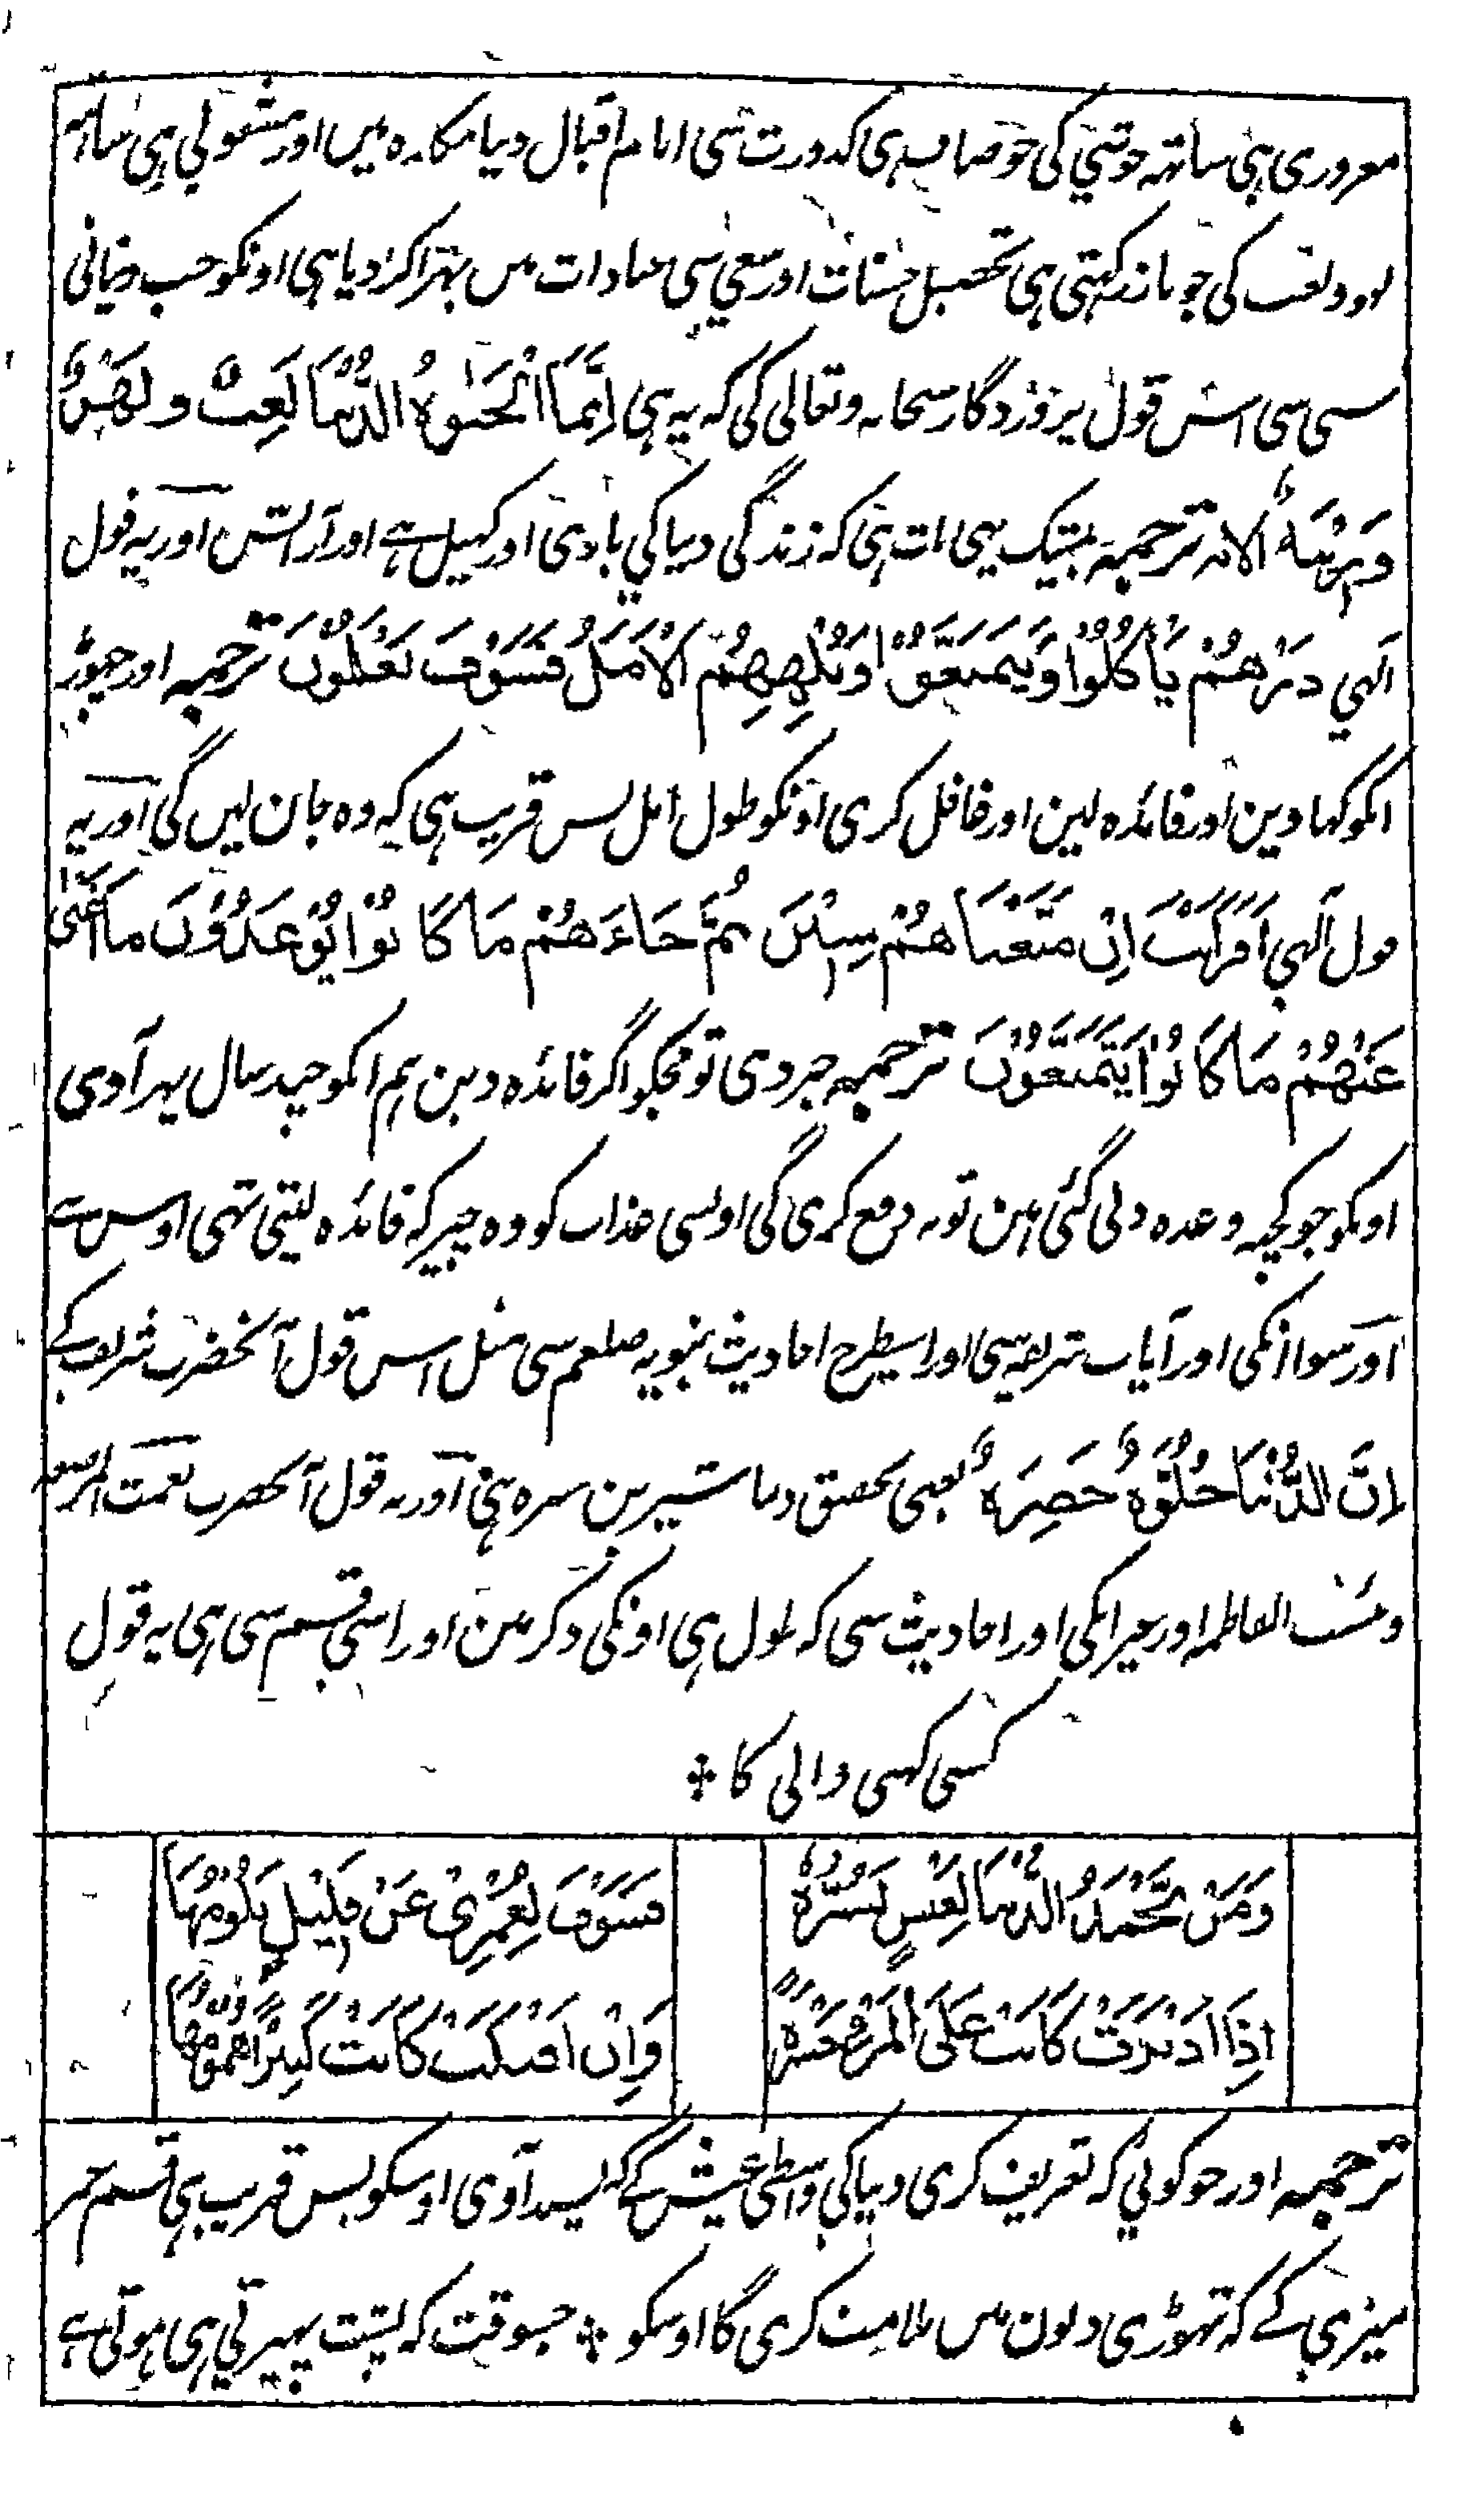 مغروری ہی ساتہ خوشی کی جو صاف ہی کدورت سی ایام اقبال دنیا مکارہ میں اور مشغولی ہی ساتہ
لہو و لعب کی جو باز رکہتی ہی تحصیل حسنات اور سعی سی عبادات میں بہتر اکر دیا ہی اونکو حب
سی سی اس قول پروردگار سبحانہ و تعالی کی کہ یہ ہی اِنَّمَا الْحَیٰوۃُ الدُّنْیَا لَعِبٌ وَ لَھْوٌ
وَزِیْنَۃٌ الآیہ ترجمہ بیشک یہی بات ہی کہ زندگی دنیا کی بازی اور کہیل ہے اور آرایش اور یہ قول
الہی ذَرْھُمْ یَاْکُلُوْا وَیَتَمَتَّعُوْا وَیُلْھِھِمُ الْاَمَلُ فَسَوْفَ یَعْلَمُوْنَ ترجمہ اور چھوڑ
انکو کہاوین اور فائدہ لین اور غافل کری اونکو طول امل پس قریب ہی کہ وہ جان لیں گی اور یہ
قول الہی اَفَرَاَیْتَ اِنْ مَتَّعْنَاھُمْ سِنِیْنَ ثُمَّ جَاءَھُمْ مَا کَانُوْا یُوْعَدُوْنَ مَا اَغْنٰی
عَنْھُمْ مَا کَانُوْا یُمَتَّعُوْنَ ترجمہ خبر دی تو مجکو اگر فائدہ دین ہم انکو چند سال پہر آوی
اونکو جو کچہ وعدہ دئی گئی ہین تو نہ دفع کری گی اونسی عذاب کو وہ چیز کہ فائدہ لیتی تہی اوس سے
اور سوا انکی اور آیات شریفہ سی اور اسیطرح احادیث نبویہ صلعم سی مثل اس قول آنحضرت شریف کے
اِنَّ الدُّنْیَا حُلْوَۃٌ خَضِرَۃٌ یعنی تحقیق دنیا شیرین سبزہ ہی اور یہ قول آنحضرت نعمت المرضعہ
وبئست الفاطمہ اور غیر انکی اور احادیث سی کہ طول ہی اونکی ذکر مین اور اسی قسم سی ہی یہ قول
کسی کہنی والی کا
وَمَنْ یَّحْمَدُ الدُّنْیَا لِعَیْشٍ یَسُرُّہٗ فَسَوْفَ لَعَمْرِیْ عَنْ قَلِیْلٍ یَلُوْمُھَا
اِذَا اَدْبَرَتْ کَانَتْ عَلَی الْمَرْءِ حَسْرَۃً وَاِنْ اَقْبَلَتْ کَانَتْ کَثِیْرًا ھُمُوْمُھَا
ترجمہ اور جو کوئی کہ تعریف کری دنیا کی واسطی عیش کے کہ پسند آوی اوسکو پس قریب ہی قسم عمر
میری کے کہ تہوڑی دنون میں ملامت کری گا اوسکو جسوقت کہ پشت پہیرتی ہی ہوتی ہے